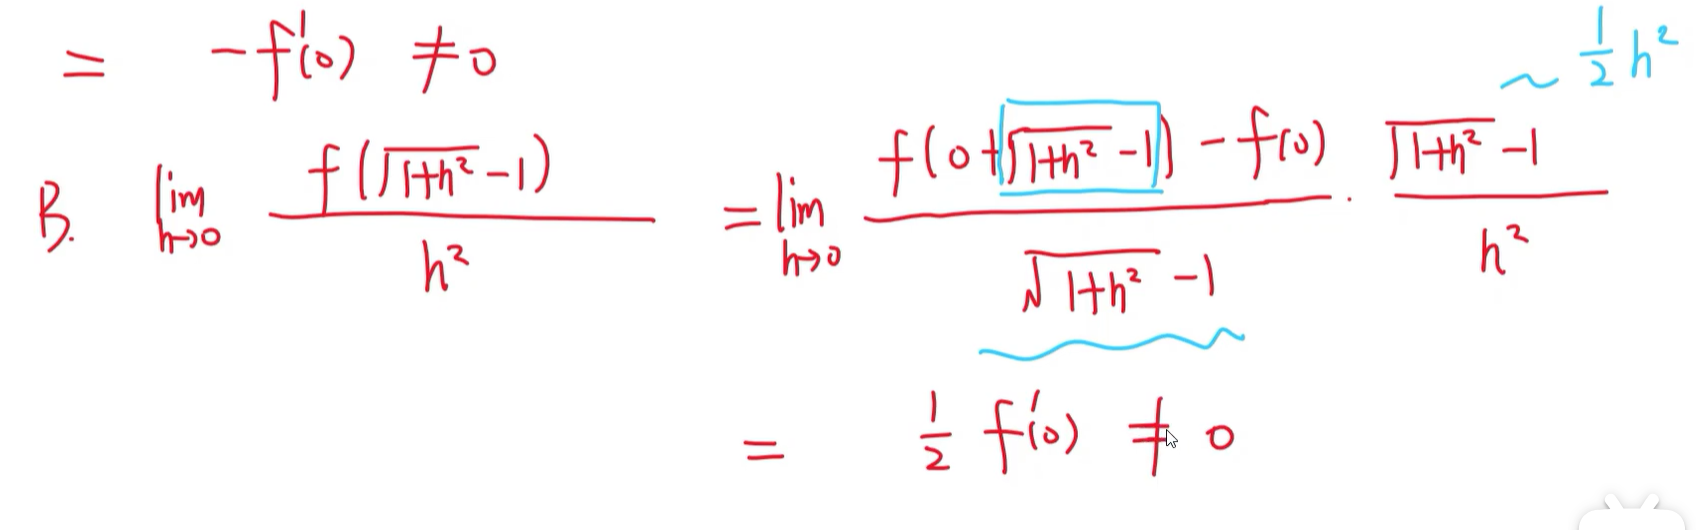 = -f'(0) ≠ 0
~ 1/2 h²
B. lim h→0 f(√(1+h²) -1) / h² = lim h→0 (f(0+√(1+h²) -1) - f(0)) / (√(1+h²) -1) · (√(1+h²) -1) / h²
= 1/2 f'(0) ≠ 0